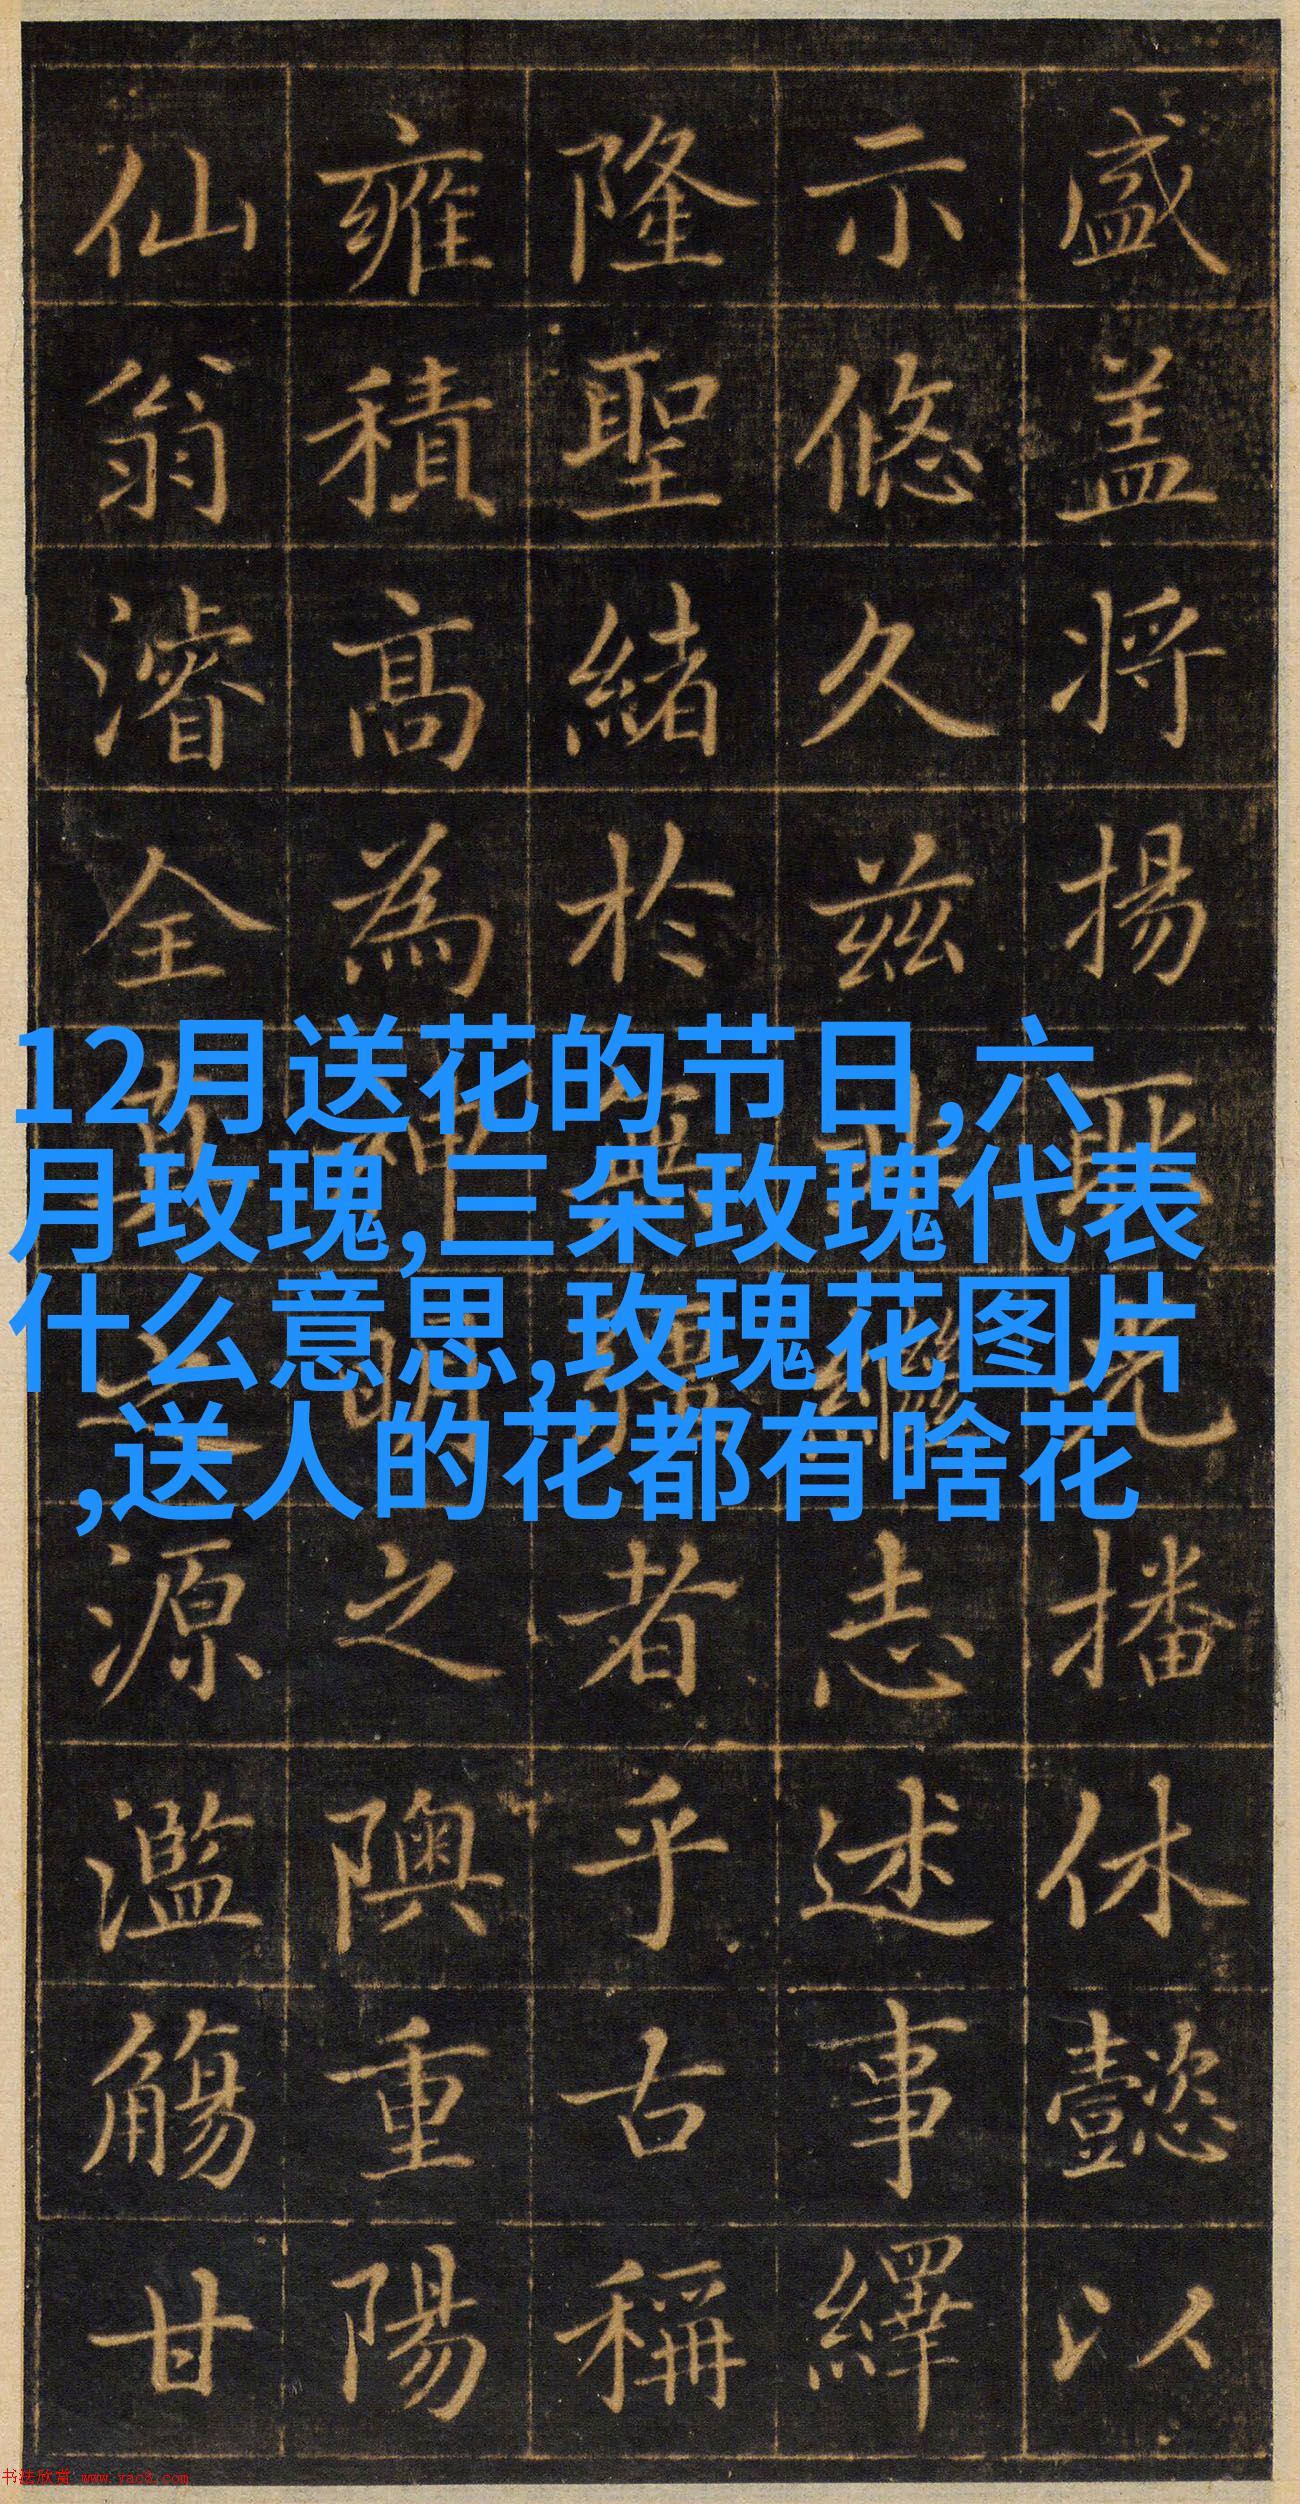 盛盖将揚耿光播休懿以
示悠久兹繼志述事繹
隆聖緒於無疆者乎古稱
雍積高為神明之隩重陽
仙翁濬全真之源濫觴甘
12月送花的节日,六
月玫瑰,三朵玫瑰代表
什么意思,玫瑰花图片
,送人的花都有啥花
书法欣赏 www.yac8.com